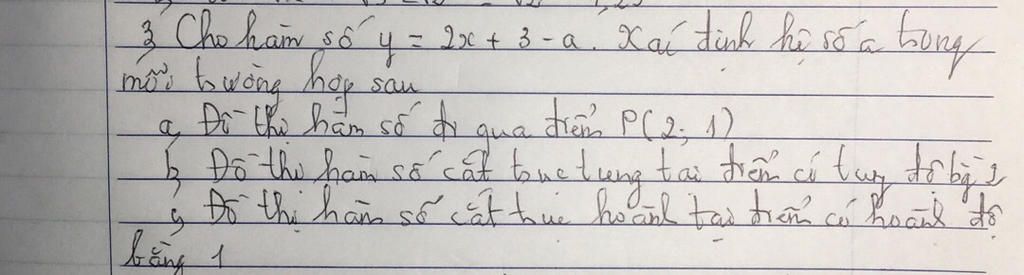 3, Cho hàm số y = 2x + 3 - a. Xác định hệ số a trong
mỗi trường hợp sau
a, Đồ thị hàm số đi qua điểm P(2; 1)
b, Đồ thị hàm số cắt trục tung tại điểm có tung độ bg 2
c, Đồ thị hàm số cắt trục hoành tại điểm có hoành độ
bằng 1